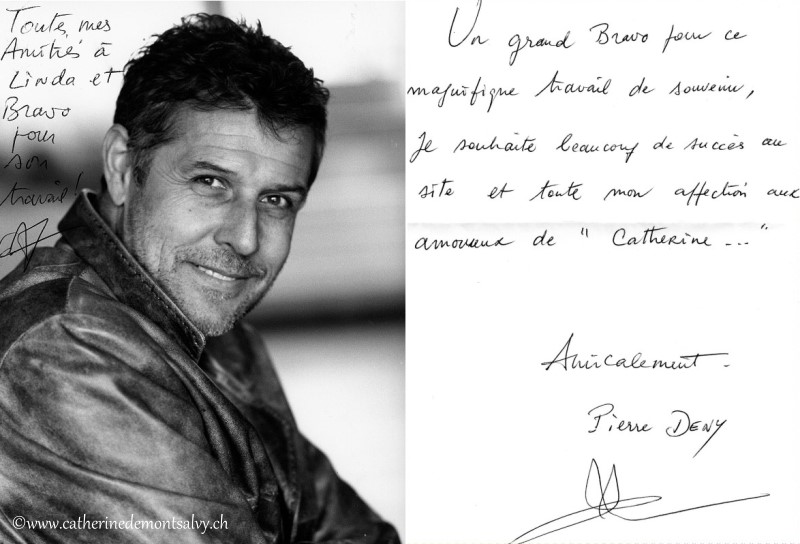 Toutes mes
Amitiés à
Linda et
Bravo
pour
son
travail!
Un grand Bravo pour ce
magnifique travail de souvenir,
Je souhaite beaucoup de succès au
site et toute mon affection aux
amoureux de " Catherine ... "
Amicalement -
Pierre DENY
©www.catherinedemontsalvy.ch